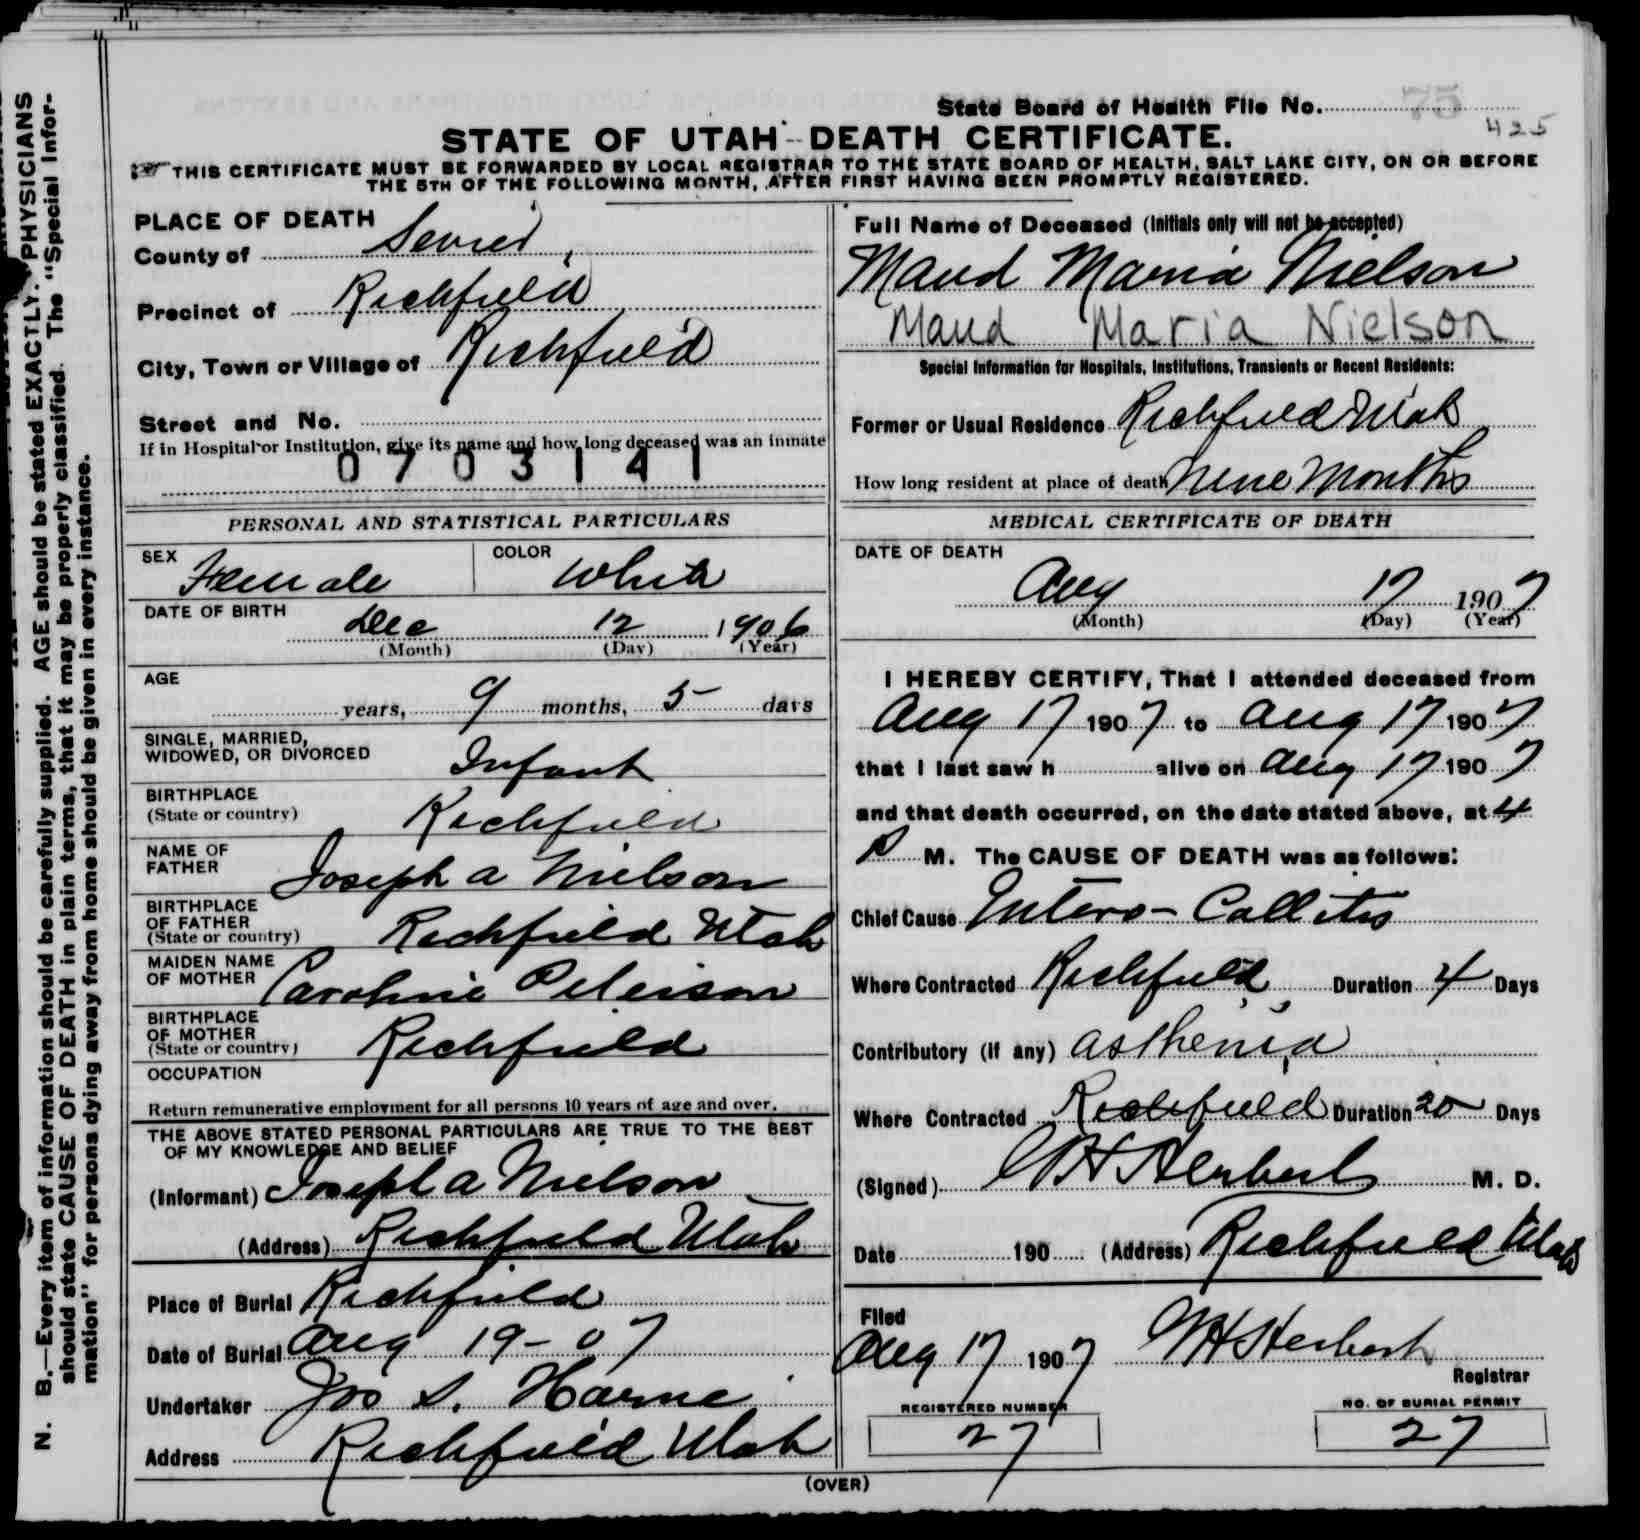 N. B.—Every item of information should be carefully supplied. AGE should be stated EXACTLY. PHYSICIANS
should state CAUSE OF DEATH in plain terms, that it may be properly classified. The "Special Infor-
mation" for persons dying away from home should be given in every instance.
State Board of Health File No. 75
425
STATE OF UTAH - DEATH CERTIFICATE.
THIS CERTIFICATE MUST BE FORWARDED BY LOCAL REGISTRAR TO THE STATE BOARD OF HEALTH, SALT LAKE CITY, ON OR BEFORE
THE 5TH OF THE FOLLOWING MONTH, AFTER FIRST HAVING BEEN PROMPTLY REGISTERED.
PLACE OF DEATH
County of Sevier
Precinct of Richfield
City, Town or Village of Richfield
Street and No.
If in Hospital or Institution, give its name and how long deceased was an inmate
0703141
Full Name of Deceased (Initials only will not be accepted)
Maud Maria Nielson
Maud Maria Nielson
Special Information for Hospitals, Institutions, Transients or Recent Residents:
Former or Usual Residence Richfield Utah
How long resident at place of death Nine Months
PERSONAL AND STATISTICAL PARTICULARS
SEX Female
COLOR White
DATE OF BIRTH
Dec 12 1906
(Month) (Day) (Year)
AGE
years, 9 months, 5 days
SINGLE, MARRIED,
WIDOWED, OR DIVORCED Infant
BIRTHPLACE
(State or country) Richfield
NAME OF
FATHER Joseph A Nielson
BIRTHPLACE
OF FATHER
(State or country) Richfield Utah
MAIDEN NAME
OF MOTHER Caroline Peterson
BIRTHPLACE
OF MOTHER
(State or country) Richfield
OCCUPATION
Return remunerative employment for all persons 10 years of age and over.
THE ABOVE STATED PERSONAL PARTICULARS ARE TRUE TO THE BEST
OF MY KNOWLEDGE AND BELIEF
(Informant) Joseph A Nielson
(Address) Richfield Utah
Place of Burial Richfield
Date of Burial Aug 19-07
Undertaker Jos S. Horne
Address Richfield Utah
MEDICAL CERTIFICATE OF DEATH
DATE OF DEATH
Aug 17 1907
(Month) (Day) (Year)
I HEREBY CERTIFY, That I attended deceased from
Aug 17 1907 to Aug 17 1907
that I last saw h alive on Aug 17 1907
and that death occurred, on the date stated above, at 4
P M. The CAUSE OF DEATH was as follows:
Chief Cause Entero-Collitis
Where Contracted Richfield Duration 4 Days
Contributory (If any) Asthenia
Where Contracted Richfield Duration 20 Days
(Signed) WH Herbert M. D.
Date 190 (Address) Richfield Utah
Filed
Aug 17 1907 WH Herbert
Registrar
REGISTERED NUMBER
27
NO. OF BURIAL PERMIT
27
(OVER)